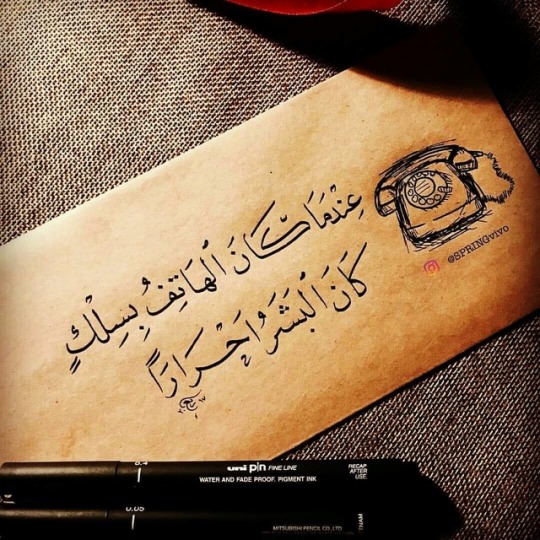 عِنْدَمَا كَانَ الْهَاتِفُ بِسِلْكٍ
كَانَ الْبَشَرُ احْرَارًا
@SPRINGvivo
0.4
uni pin FINE LINE
WATER AND FADE PROOF, PIGMENT INK
RECAP AFTER USE.
0.05
MITSUBISHI PENCIL CO., LTD